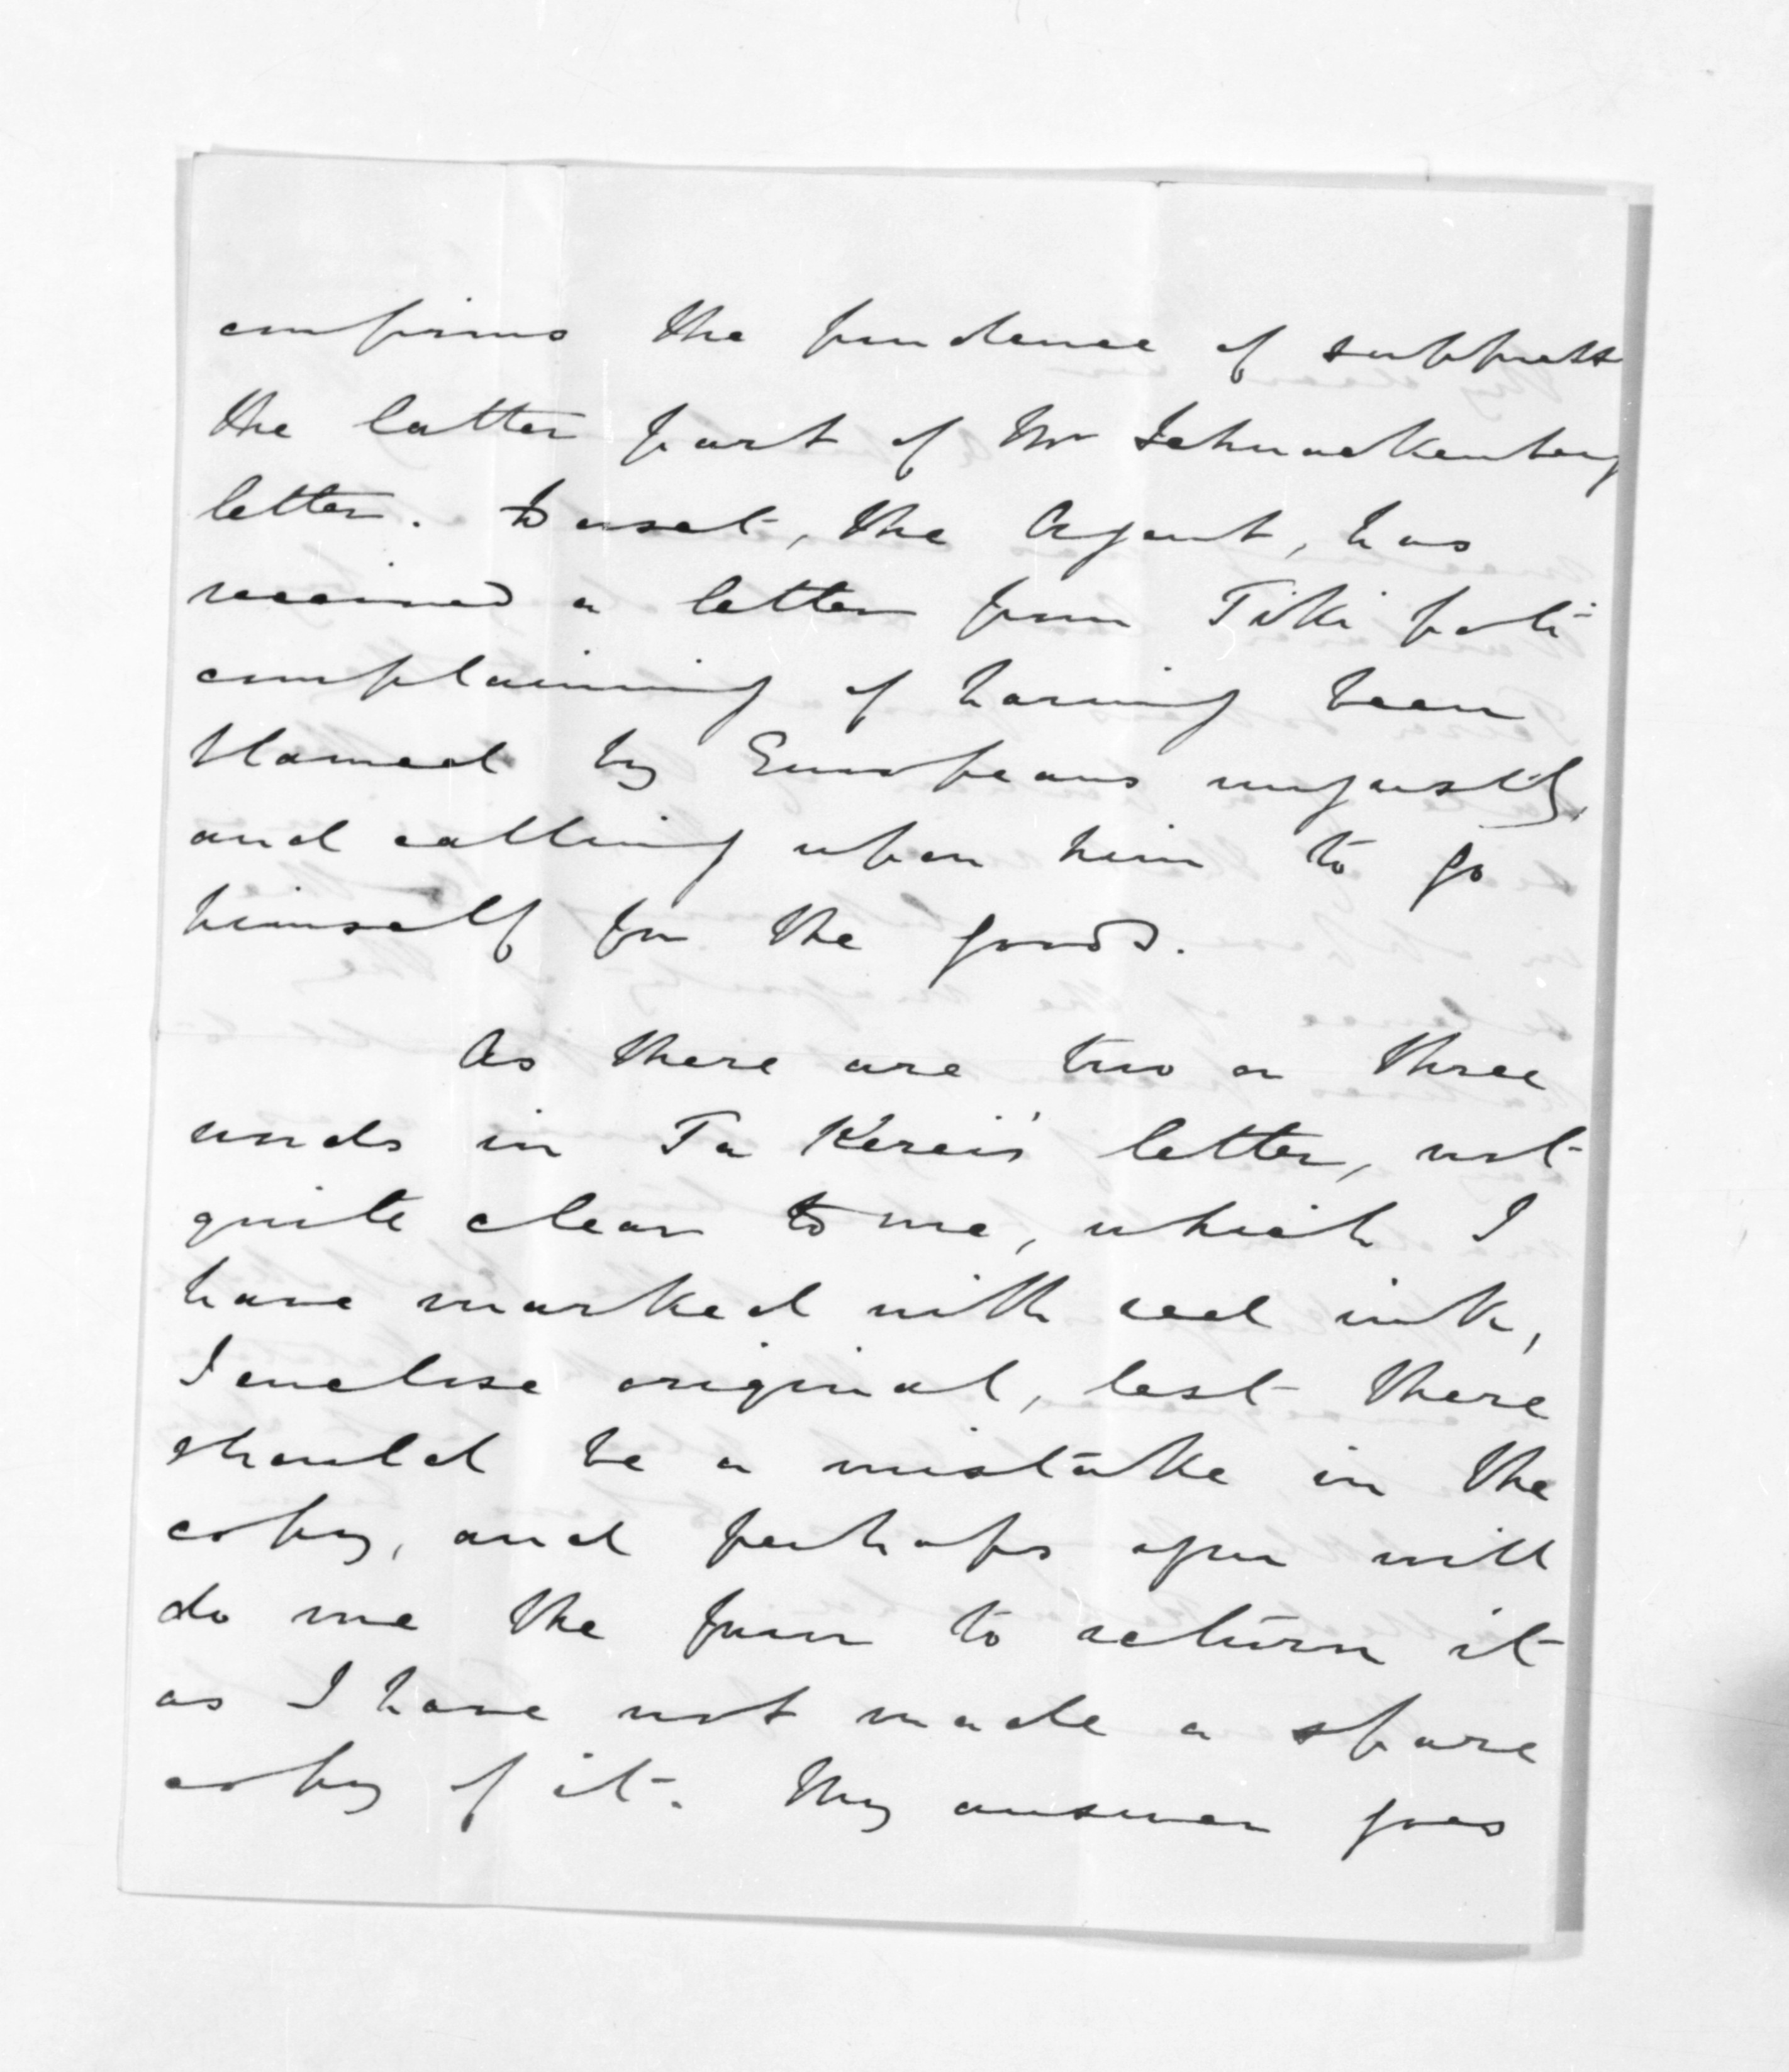 confirms the prudence of suppress
the latter part of Mr Schnackenberg
letter. Duset, the Agent, has
received a letter from Tiki poti
complaining of having been
blamed by Europeans unjustly,
and calling upon him to go
himself for the goods.
As there are two or three
words in Ta Kerei's letter, not
quite clear to me, which I
have marked with red ink,
I enclose original, lest there
should be a mistake in the
copy, and perhaps you will
do me the favor to return it
as I have not made a spare
copy of it. My answer goes